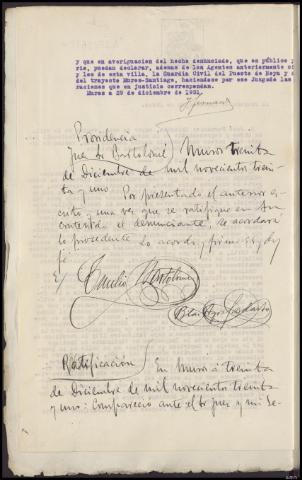 y que en averiguacion del hecho denunciado, que en público y
ris, puedan declarar, ademas de los Agentes anteriormente ci
y los de esta villa, la Guardia Civil del Puesto de Noya y d
del trayecto Muros-Santiago, haciendose por ese Juzgado las
raciones que en justicia correspondan.
Muros a 29 de diciembre de 1931.
Providencia
Juez Sr Bartolomé Muros treinta
de Diciembre de mil novecientos trein
ta y uno. Por presentado el anterior es
crito y una vez que se ratifique en su
contenido el denunciante, se acordará
lo procedente. Lo acordó y firma S. Sª doy
fé
E/ Emilio Bartolomé
Ratificación En Muros a treinta
de Diciembre de mil novecientos treinta
y uno: Compareció ante el Sr Juez y mi Se-